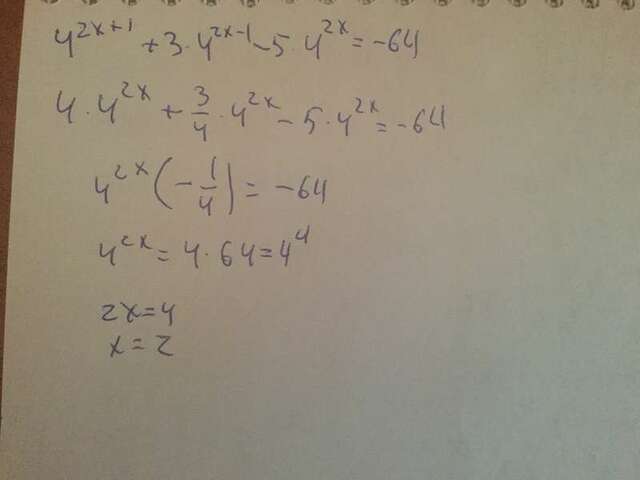 4^{2x+1} + 3 · 4^{2x-1} - 5 · 4^{2x} = -64
4 · 4^{2x} + \frac{3}{4} · 4^{2x} - 5 · 4^{2x} = -64
4^{2x} (-\frac{1}{4}) = -64
4^{2x} = 4 · 64 = 4^4
2x = 4
x = 2